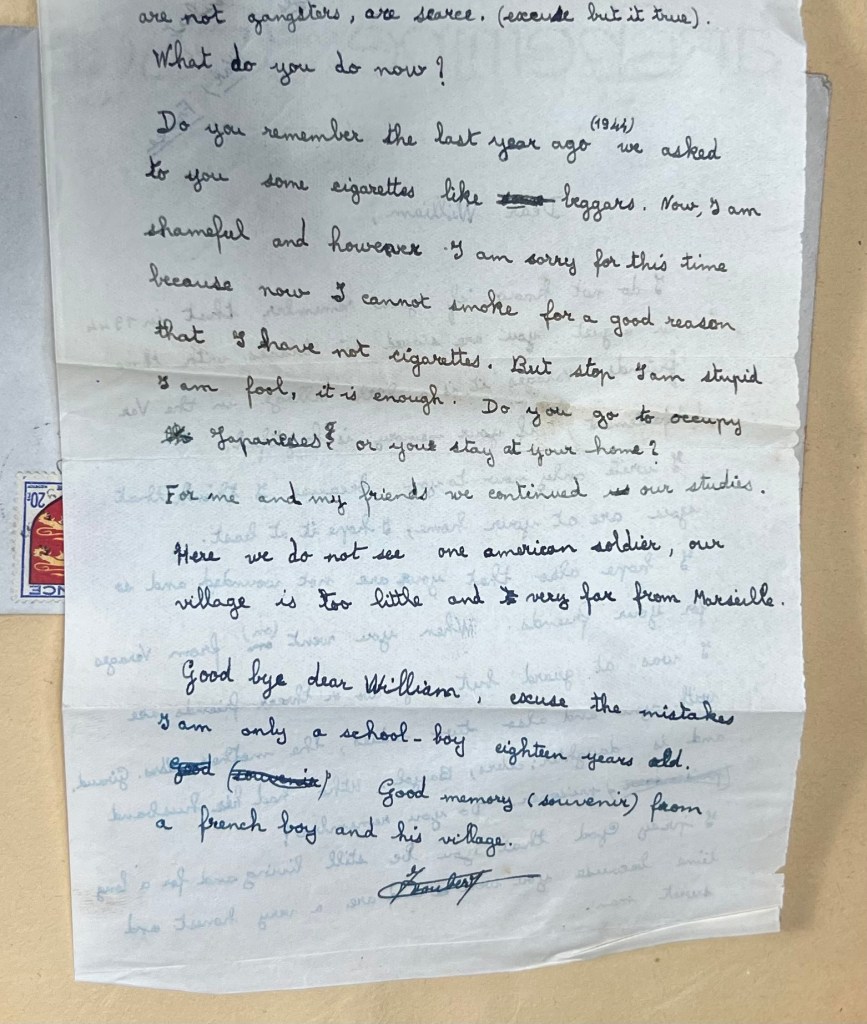 are not gangsters, are scarce. (excuse but it true).
What do you do now?
Do you remember the last year ago (1944) we asked
to you some cigarettes like beggars. Now, I am
shameful and however I am sorry for this time
because now I cannot smoke for a good reason
that I have not cigarettes. But stop I am stupid
I am fool, it is enough. Do you go to occupy
Japanieses? or your stay at your home?
For me and my friends we continued our studies.
Here we do not see one american soldier, our
village is too little and very far from Marseille.
Good bye dear William, excuse the mistakes
I am only a school-boy eighteen years old.
good (souvenir)
Good memory (souvenir) from
a french boy and his village.
20F